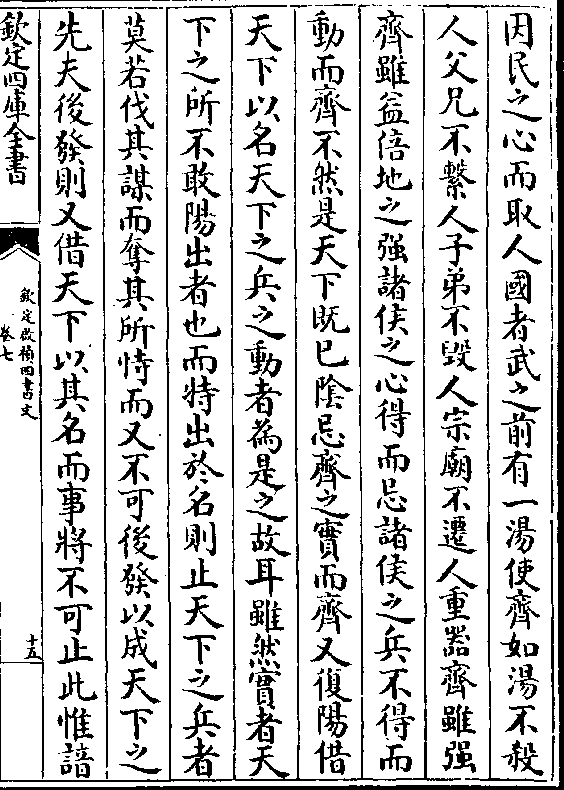 因民之心而取人國者武之前有一湯使齊如湯不殺
人父兄不繫人子弟不毀人宗廟不遷人重器齊雖强
齊雖益倍地之强諸侯之心得而忌諸侯之兵不得而
動而齊不然是天下既已陰忌齊之實而齊又復陽借
天下以名天下之兵之動者為是之故耳雖然實者天
下之所不敢陽出者也而特出於名則止天下之兵者
莫若伐其謀而奪其所恃而又不可後發以成天下之
先夫後發則又借天下以其名而事將不可止此惟諳
欽定四庫全書
欽定啟禎四書文
卷七
十五